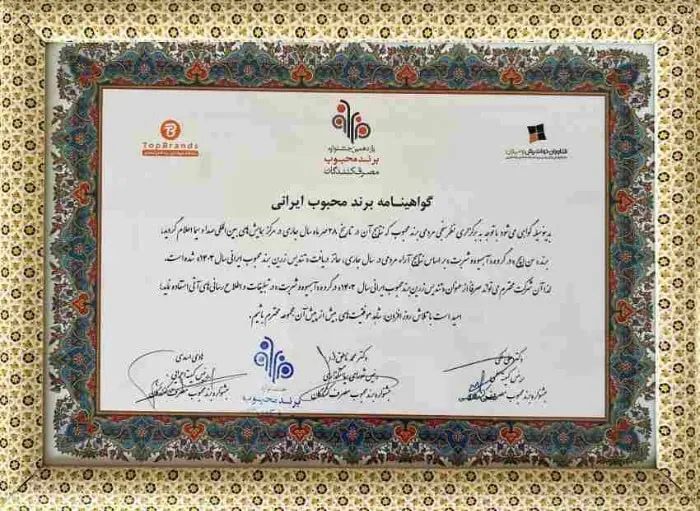 TopBrands
یازدهمین جشنواره
برند محبوب
مصرف‌کنندگان
گواهینامه برند محبوب ایرانی
بدینوسیله گواهی می‌شود با توجه به برگزاری نظرسنجی مردمی برند محبوب که نتایج آن در تاریخ ۲۸ مهرماه سال جاری در مرکز همایش‌های بین‌المللی صدا و سیما اعلام گردید؛
برند «سن ایچ» در گروه «آبمیوه و شربت» بر اساس نتایج آراء مردمی در سال جاری، حائز دریافت «تندیس زرین برند محبوب ایرانی سال ۱۴۰۳» شده است.
لذا آن شرکت محترم می‌تواند صرفا از عنوان «تندیس زرین برند محبوب ایرانی سال ۱۴۰۳» در گروه «آبمیوه و شربت» در تبلیغات و اطلاع رسانی‌های آتی استفاده نماید؛
امید است با تلاش روز افزون، شاهد موفقیت‌های بیش از پیش آن مجموعه محترم باشیم.
دکتر
جشنواره برند محبوب
دکتر محمد
رئیس شورای سیاستگذاری
جشنواره برند محبوب مصرف کنندگان
هادی اسدی
جشنواره برند محبوب
برند محبوب